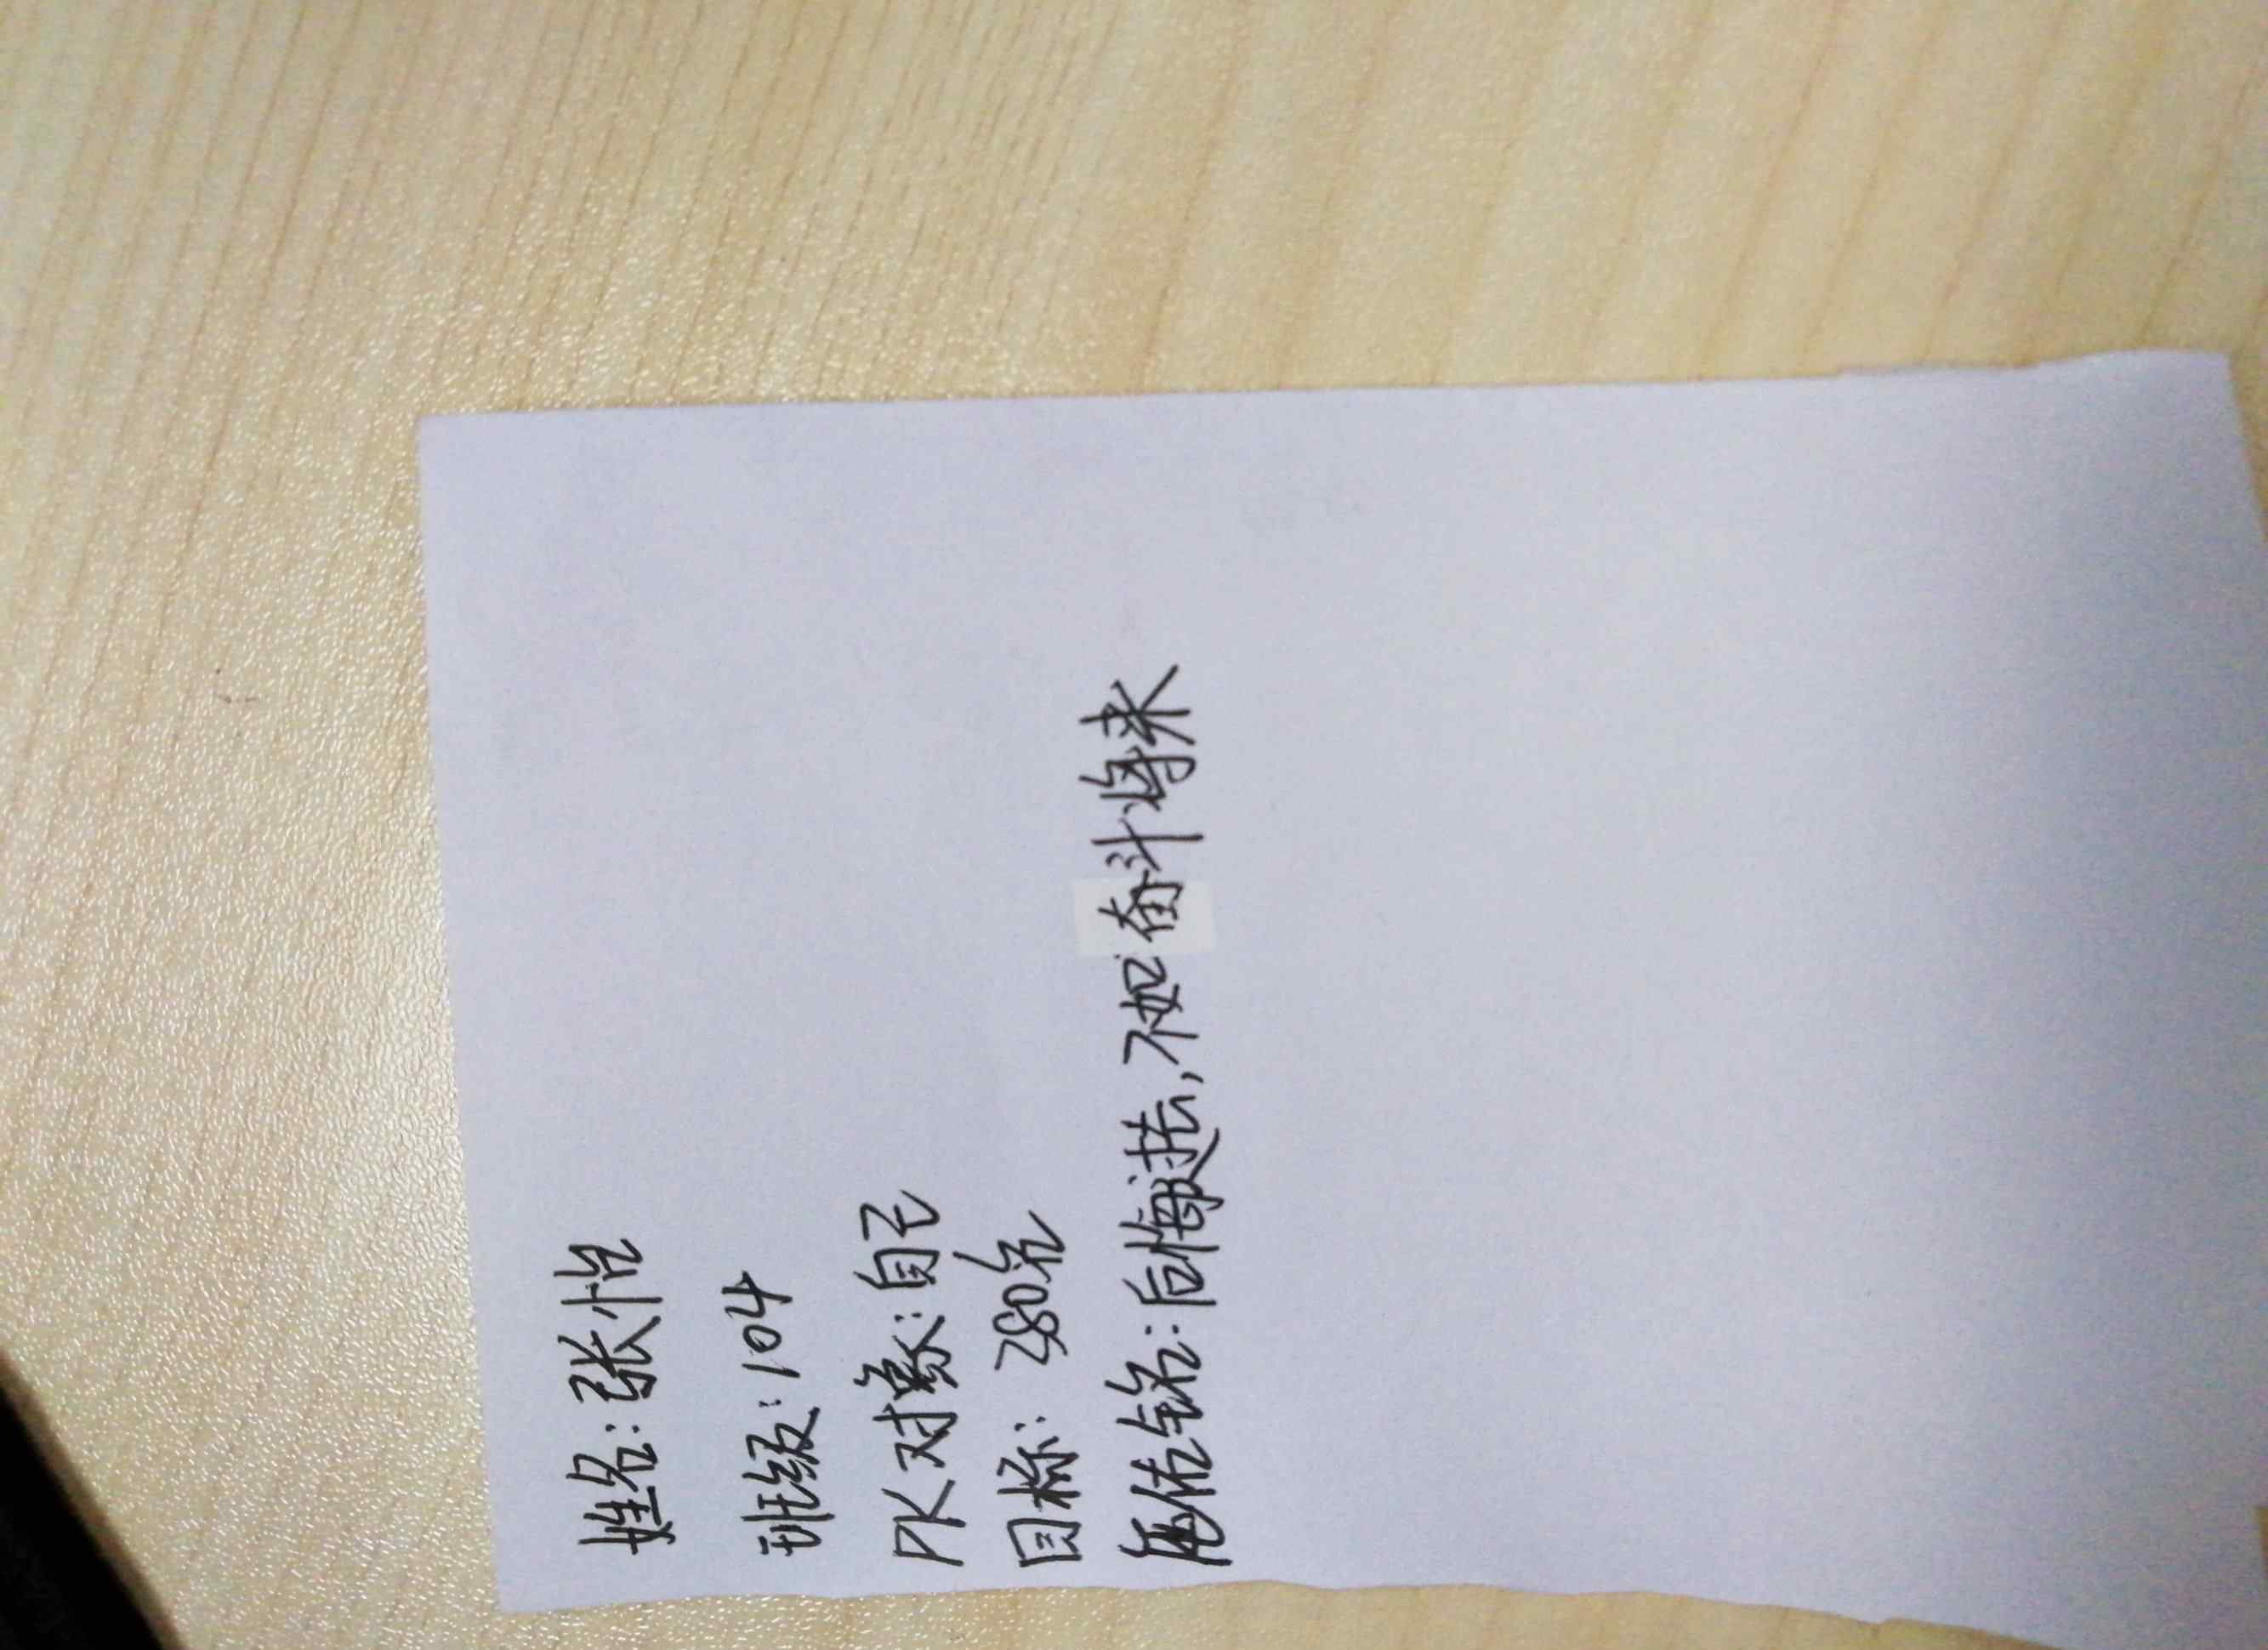 姓名:张怡
班级:104
PK对象:自己
目标:280名
座佑铭:后悔过去,不如奋斗将来